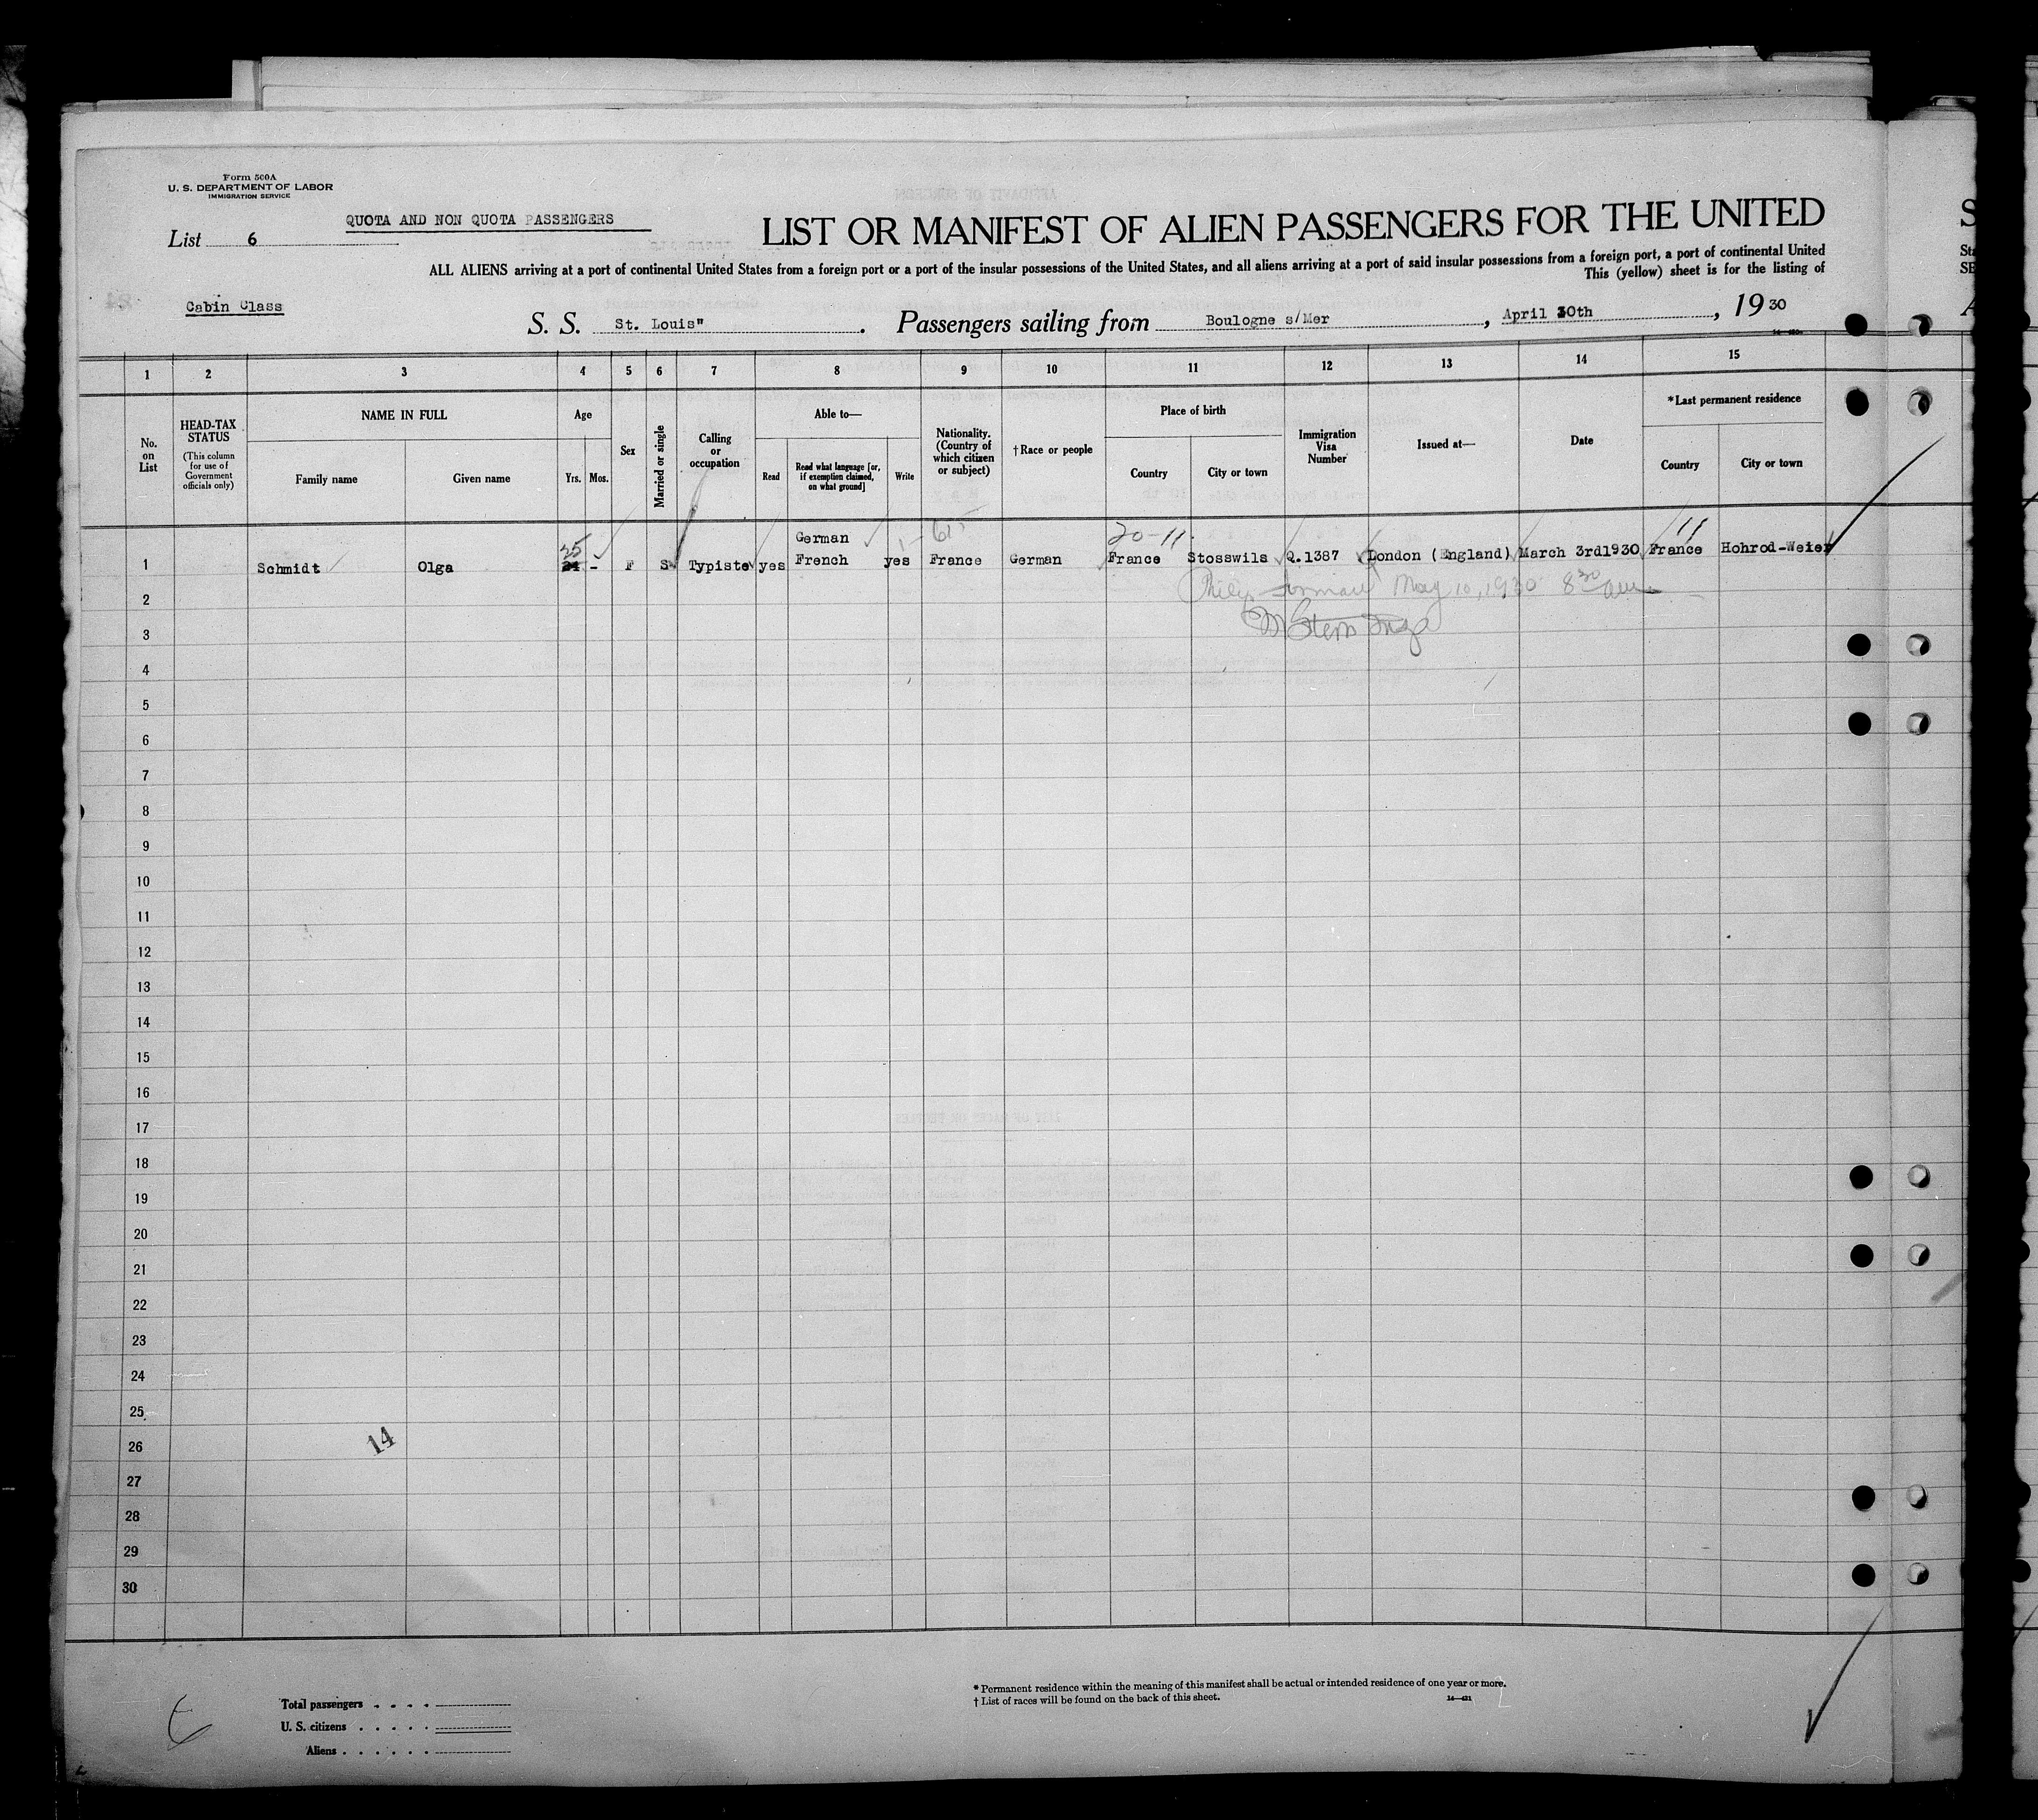 Form 500A
U. S. DEPARTMENT OF LABOR
IMMIGRATION SERVICE
QUOTA AND NON QUOTA PASSENGERS
List 6
LIST OR MANIFEST OF ALIEN PASSENGERS FOR THE UNITED
ALL ALIENS arriving at a port of continental United States from a foreign port or a port of the insular possessions of the United States, and all aliens arriving at a port of said insular possessions from a foreign port, a port of continental United
This (yellow) sheet is for the listing of
Cabin Class
S. S. St. Louis" . Passengers sailing from Boulogne s/Mer , April 30th , 19 30
1 2 3 4 5 6 7 8 9 10 11 12 13 14 15
No. on List
HEAD-TAX STATUS
(This column for use of Government officials only)
NAME IN FULL
Family name
Given name
Age
Yrs.
Mos.
Sex
Married or single
Calling or occupation
Able to—
Read
Read what language [or, if exemption claimed, on what ground]
Write
Nationality. (Country of which citizen or subject)
†Race or people
Place of birth
Country
City or town
Immigration Visa Number
Issued at—
Date
*Last permanent residence
Country
City or town
25 German 20-11 11
1 Schmidt Olga - F S Typiste yes French yes France German France Stosswils Q.1387 London (England) March 3rd1930 France Hohrod-Weier
2 May 10, 1930 8 30 am
3
4
5
6
7
8
9
10
11
12
13
14
15
16
17
18
19
20
21
22
23
24
25
26
14
27
28
29
30
*Permanent residence within the meaning of this manifest shall be actual or intended residence of one year or more.
† List of races will be found on the back of this sheet.
Total passengers
U. S. citizens
Aliens
6